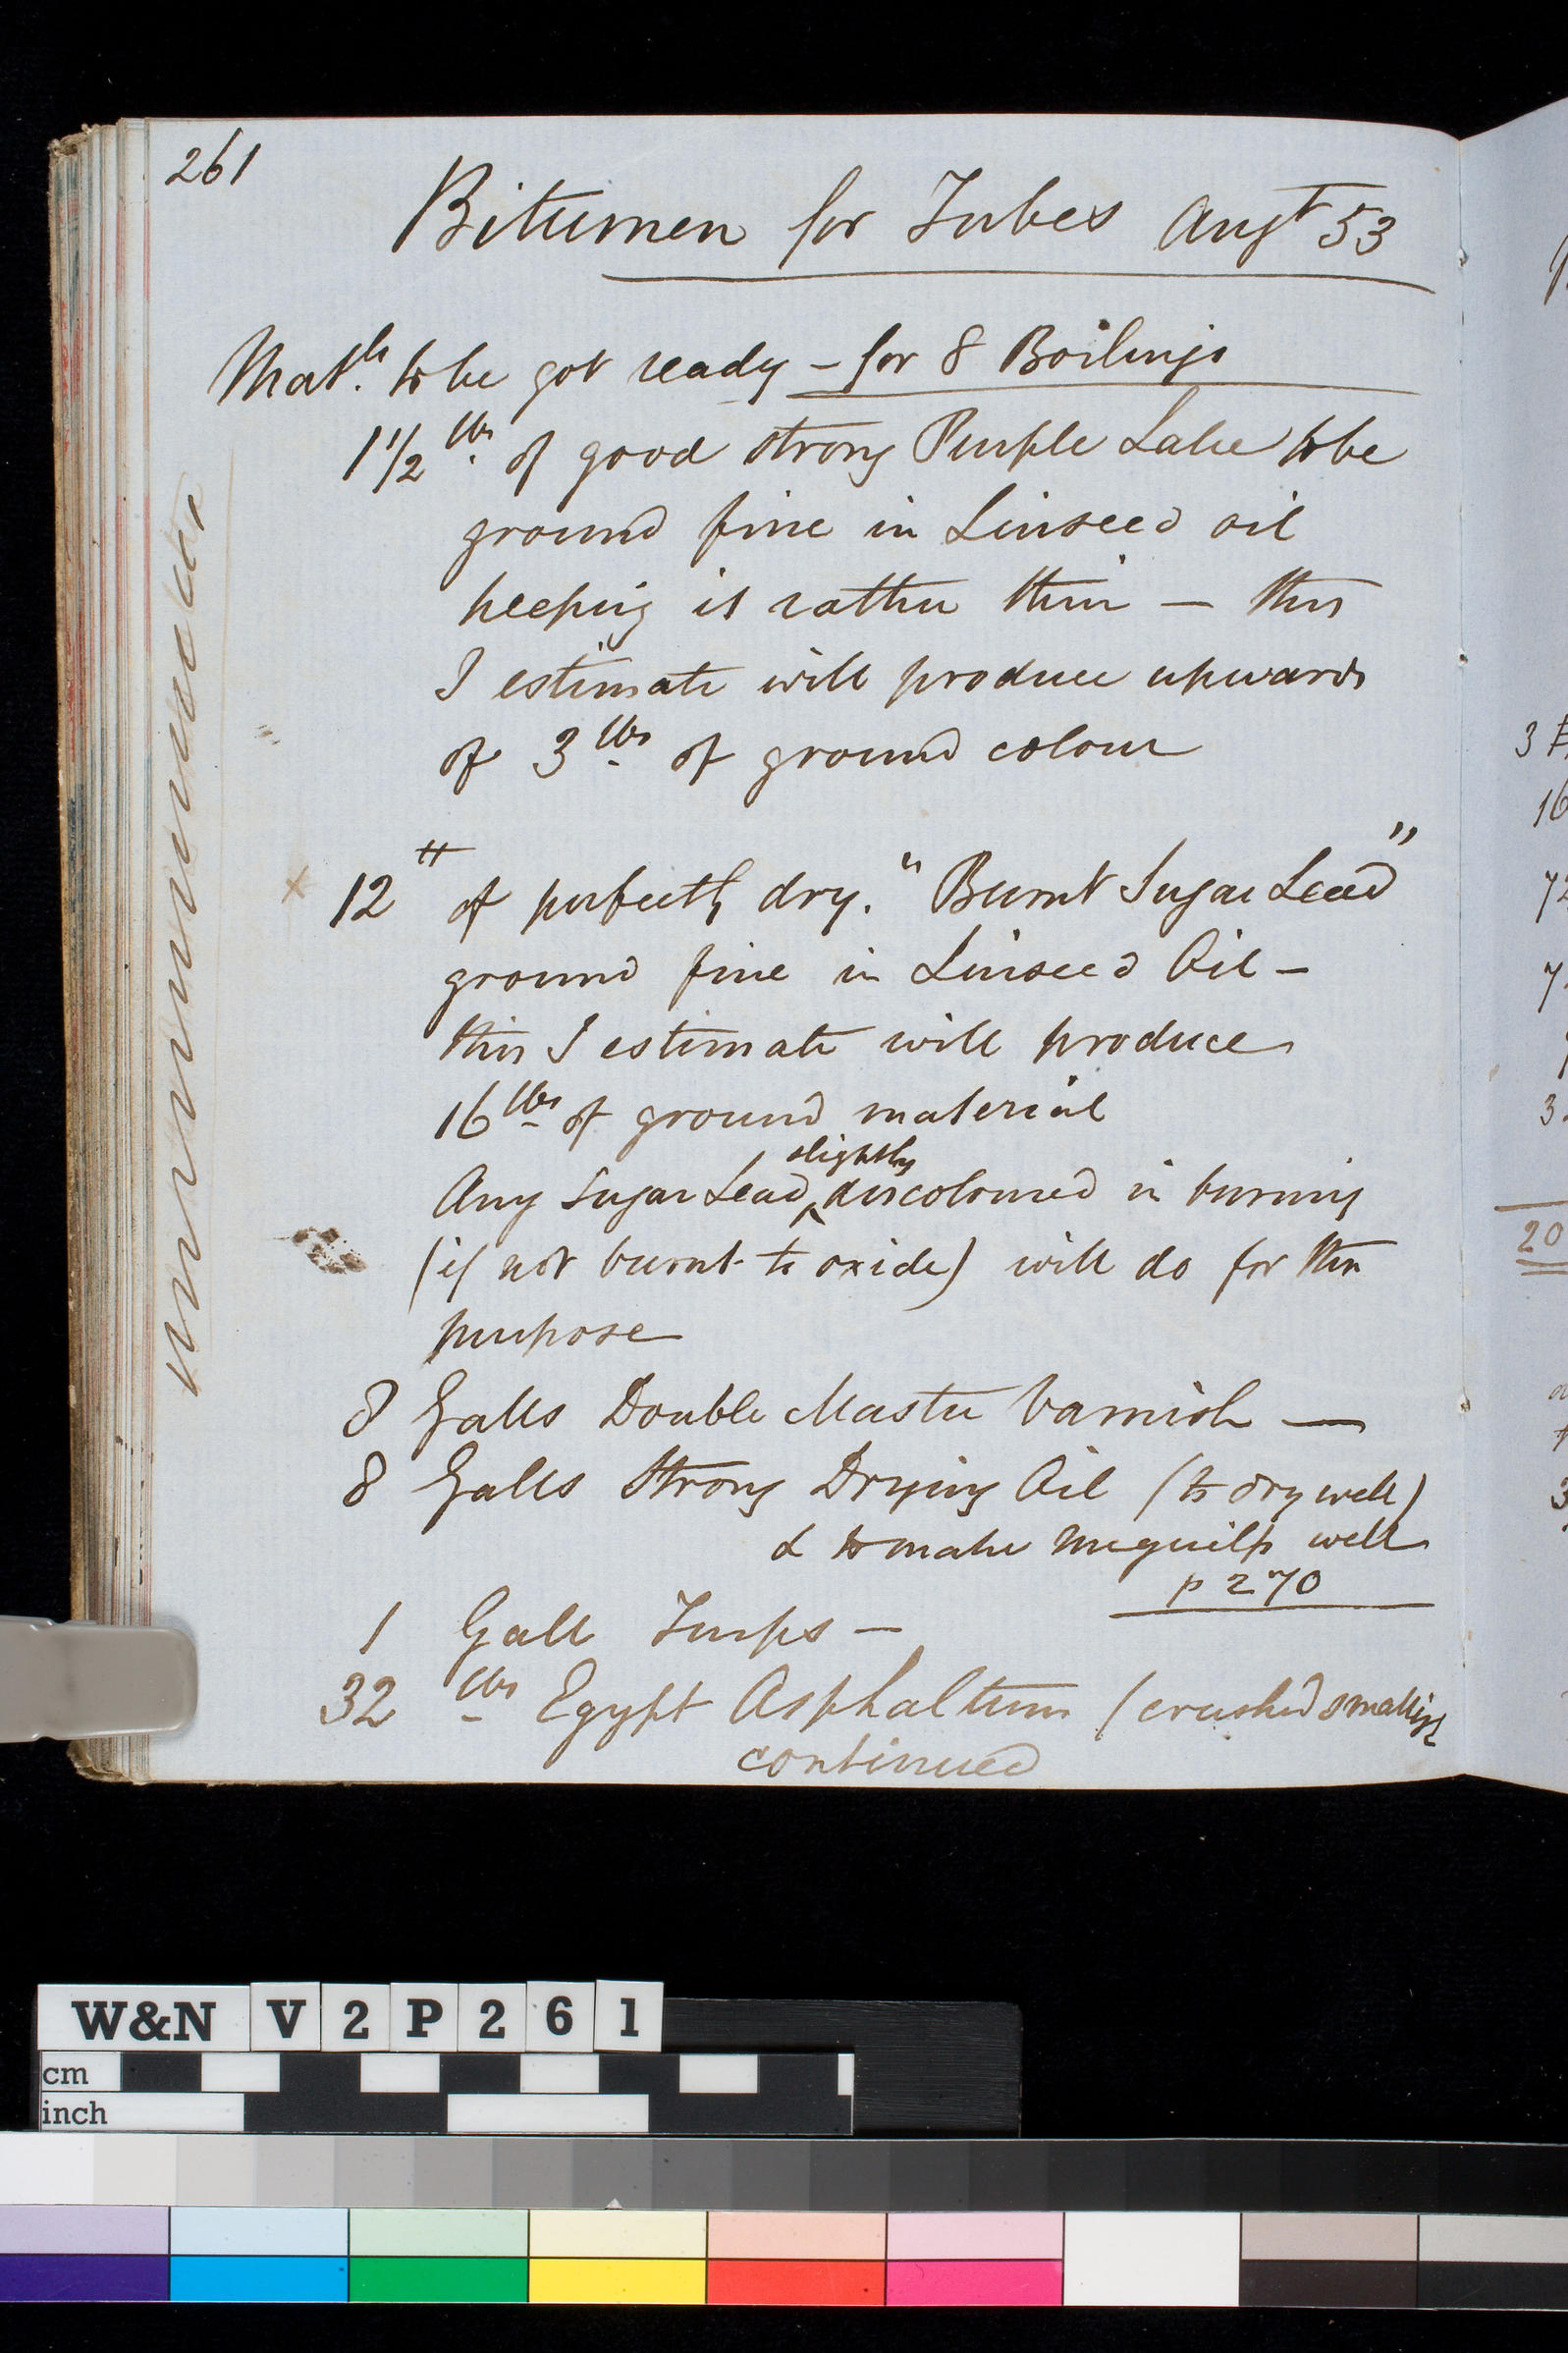 261
Bitumen for Tubes Augt 53
Matls. to be got ready - for 8 Boilings
1 1/2 lbs. of good strong Purple Lake to be
ground fine in Linseed oil
keeping it rather thin — this
I estimate will produce upwards
of 3 lbs of ground colour
x 12 " of perfectly dry. "Burnt Sugar Lead"
ground fine in Linseed Oil -
this I estimate will produce
16 lbs of ground material
slightly
Any Sugar Lead ‸ discoloured in burning
(if not burnt to oxide) will do for this
purpose
8 Galls Double Mastic Varnish —
8 Galls Strong Drying Oil (to dry well)
& to make Meguilp well
p 270
1 Gall Turps —
32 lbs Egypt Asphaltum (crushed smallish
continued
3
16
72
7
3
20
3
W&N V 2 P 2 6 1
cm
inch